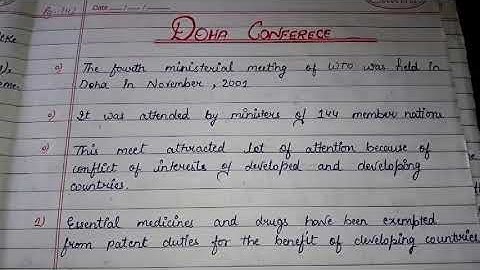 Date
DOHA CONFERECE
o) The fourth ministerial meeting of WTO was held in
Doha In November, 2001
o) It was attended by ministers of 144 member nations
o) This meet attracted lot of attention because of
conflict of interests of developed and developing
countries.
1) Essential medicines and drugs have been exempted
from patent duties for the benefit of developing countries